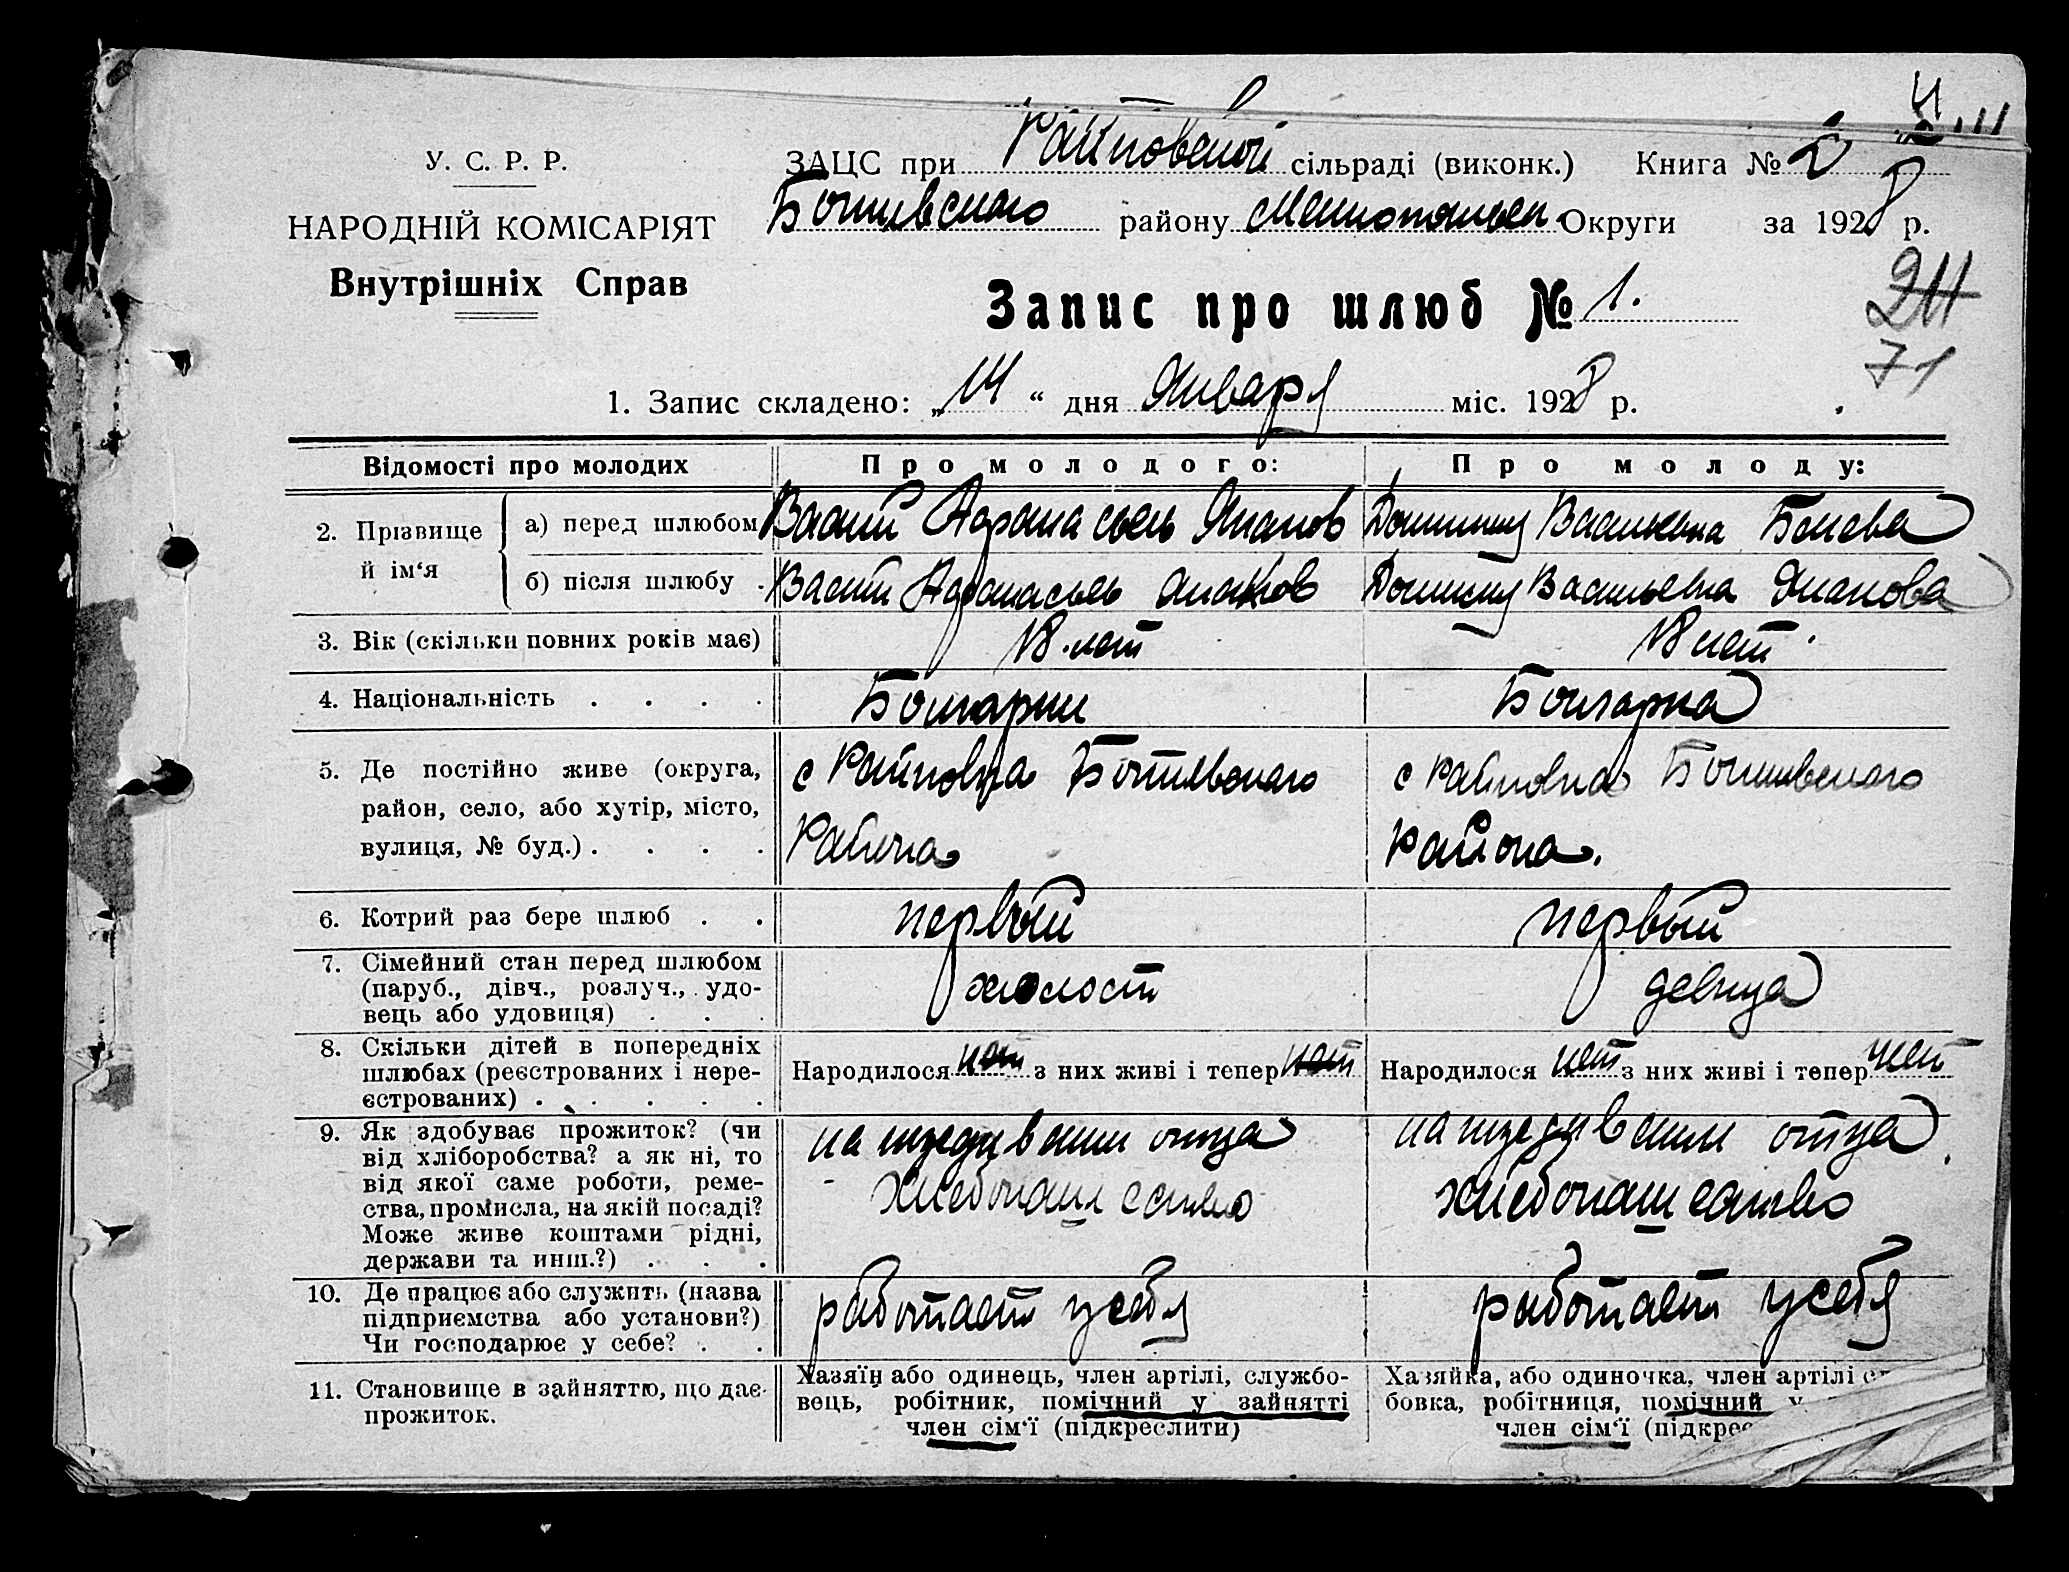 У. С. Р. Р.
НАРОДНІЙ КОМІСАРІЯТ
Внутрішніх Справ
ЗАЦС при Райновской сільраді (виконк.) Книга № 2
Ботиевского району Округи за 1928 р.
Запис про шлюб № 1.
211
71
1. Запис складено: „14“ дня Января міс. 1928 р.
Відомості про молодих Про молодого: Про молоду:
2. Прізвище й ім‘я
а) перед шлюбом Васил Афанасьев Янаков Домникия Васильевна Бенева
б) після шлюбу Васил Афанасьев Янаков Домникия Васильевна Янакова
3. Вік (скільки повних років має) 18 лет 18 лет.
4. Національність . . . . Болгарин Болгарка
5. Де постійно живе (округа, с Райновка Ботиевского с Райновка Ботиевского
район, село, або хутір, місто,
вулиця, № буд.) . . . . Района Района.
6. Котрий раз бере шлюб . . первый первый
7. Сімейний стан перед шлюбом
(паруб., дівч., розлуч., удо- холост девица
вець або удовиця) . . .
8. Скільки дітей в попередніх
шлюбах (реєстрованих і нере- Народилося нет з них живі і тепер нет Народилося нет з них живі і тепер нет
єстрованих) . . . . . .
9. Як здобуває прожиток? (чи на иждевении отца на иждевении отца
від хліборобства? а як ні, то
від якої саме роботи, реме- хлебопашество хлебопашество
ства, промисла, на якій посаді?
Може живе коштами рідні,
держави та инш.?) . . .
10. Де працює або служить (назва
підприємства або установи?) работает у себя работает у себя
Чи господарює у себе? . .
11. Становище в зайняттю, що дає Хазяїн або одинець, член артілі, службо- Хазяйка, або одиночка, член артілі
прожиток. вець, робітник, помічний у зайнятті бовка, робітниця, помічний у
член сім‘ї (підкреслити) член сім‘ї